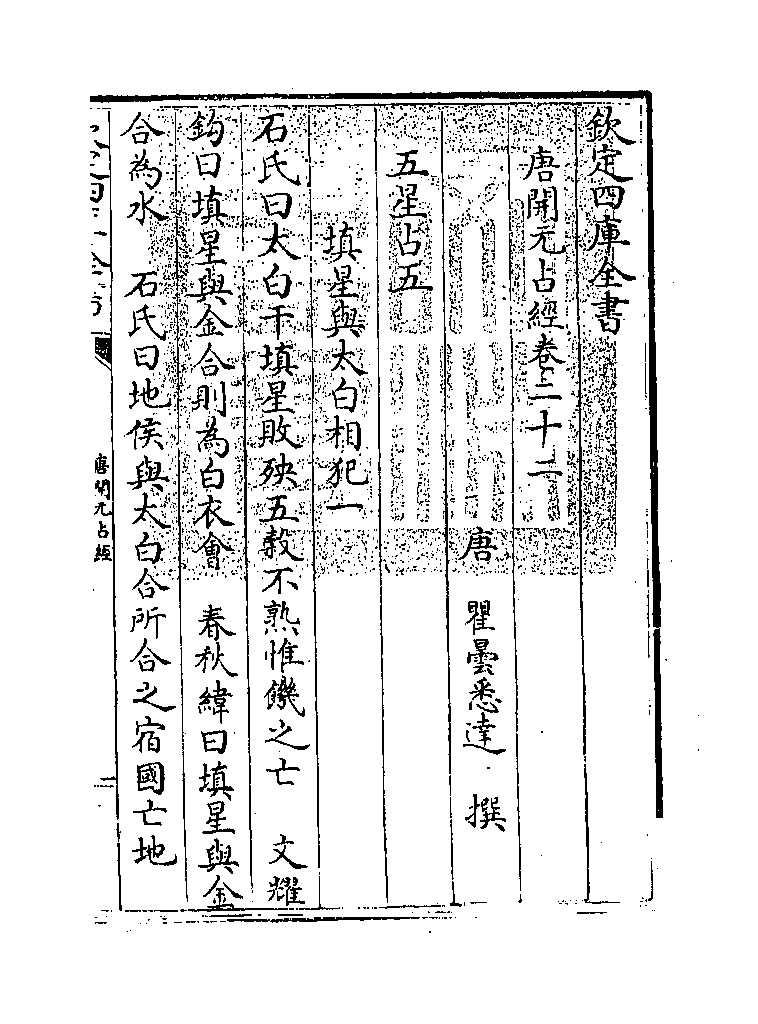 欽定四庫全書
唐開元占經卷二十二
唐 瞿曇悉達 撰
五星占五
填星與太白相犯一
石氏曰太白干填星敗殃五榖不熟惟饑之亡 文耀
鈎曰填星與金合則為白衣會 春秋緯曰填星與金
合為水 石氏曰地侯與太白合所合之宿國亡地
唐開元占經